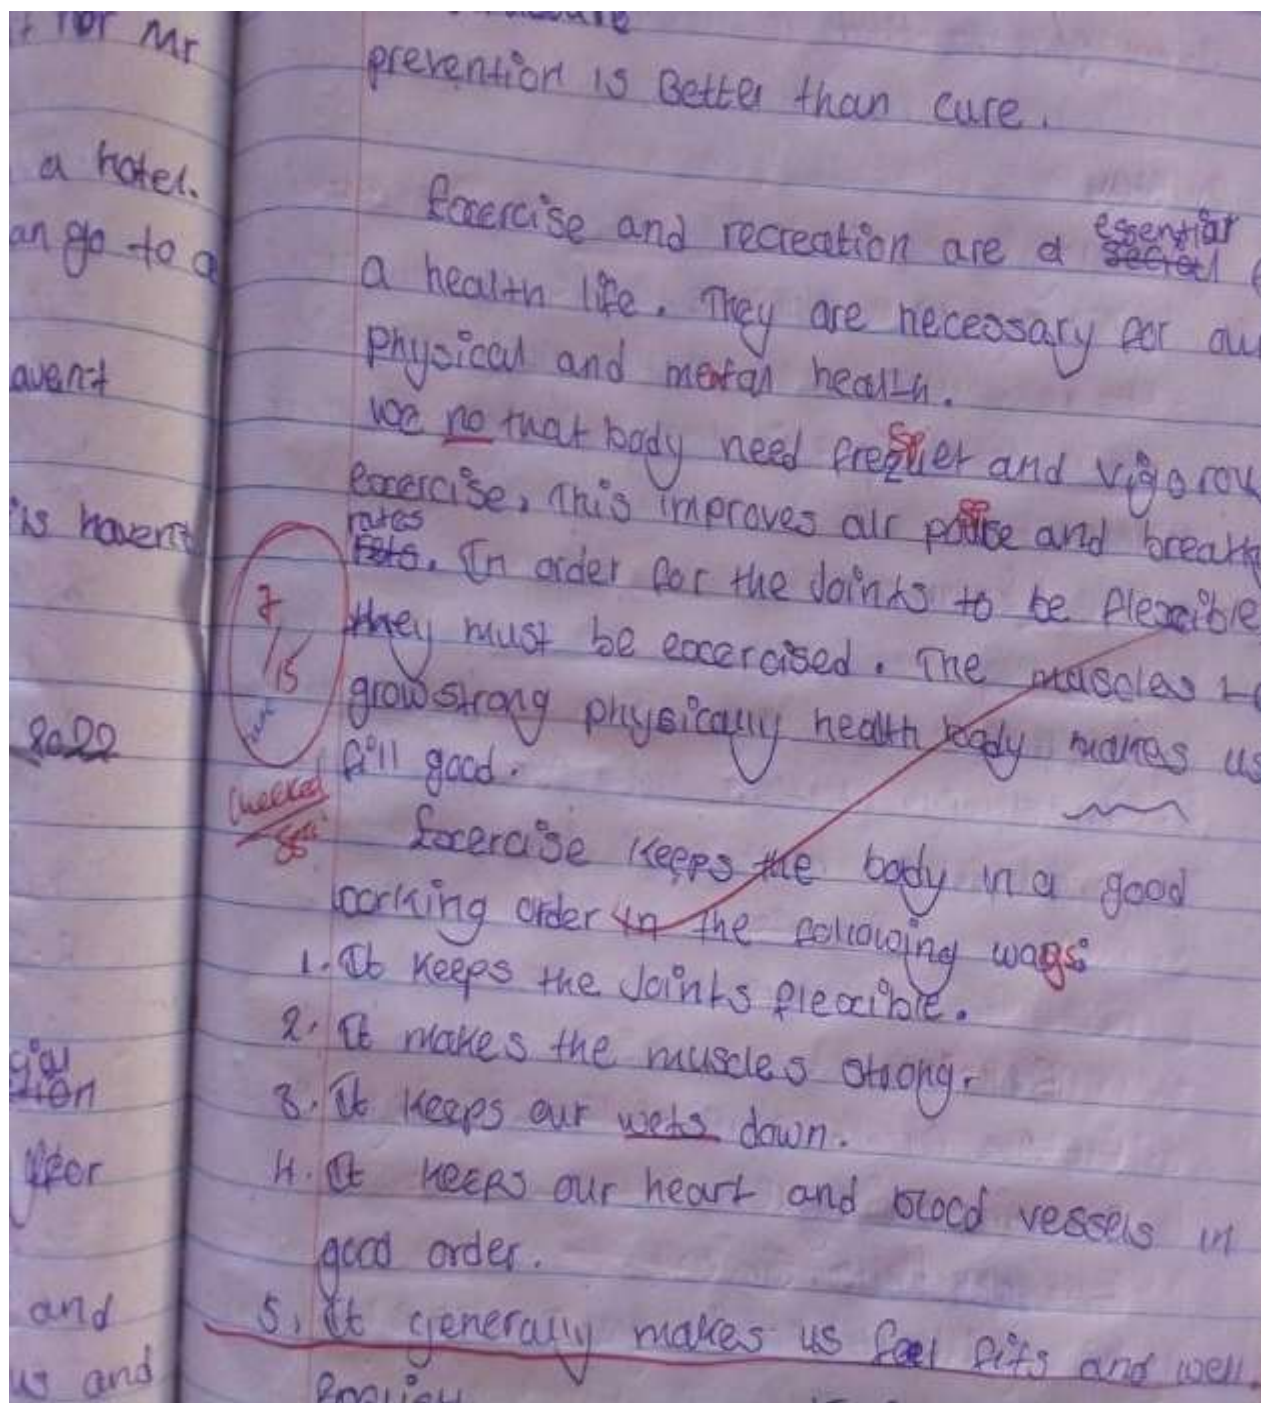 t for Mr
a hotel.
an go to a
avent
is havent
2022
and
us and
prevention is Better than cure.
Exercise and recreation are a essential secret
a health life. They are necessary for ou
physical and mental health.
We no that body need and vigorou
exercise, This improves air and breath
rates
. In order for the Joints to be flexible
they must be excercised. The muscles to
grow strong physically health body makes us
fill good.
7/15
Checked
Exercise keeps the body in a good
working order in the following ways:
1. It keeps the Joints flexible.
2. It makes the muscles strong.
3. It keeps our wets down.
4. It keeps our heart and blood vessels in
good order.
5. It generally makes us feel fits and well.